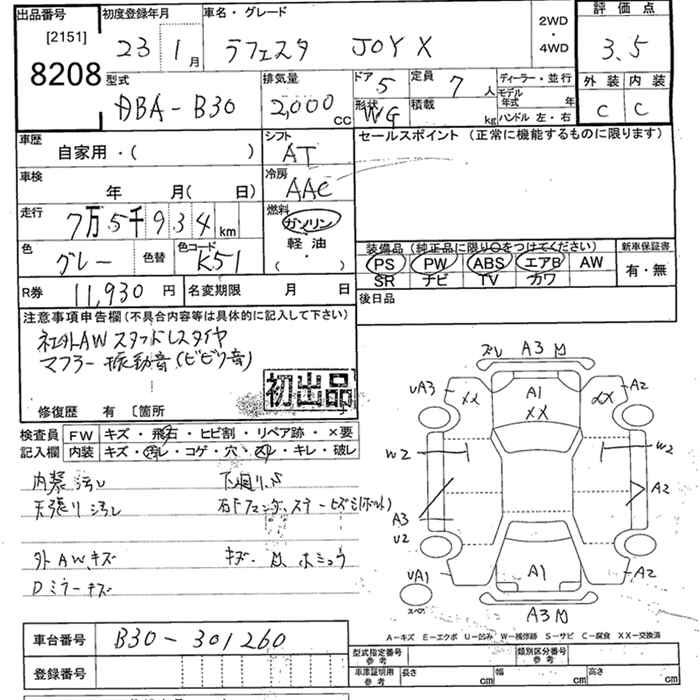 出品番号 初度登録年月 車名・グレード 2WD・4WD 評価点
[2151]
8208
23 1月 ラフェスタ JOY X 3.5
型式 排気量 ドア 定員 ディーラー・並行 外装 内装
DBA-B30 2,000cc 5 7人 モデル年式 年 C C
形状 WG 積載 kg ハンドル 左・右
車歴 シフト セールスポイント (正常に機能するものに限ります)
自家用・( ) AT
車検 冷房
年 月( 日) AAC
走行 燃料
7万5千934km ガソリン
軽油
( ・ )
色 色替 色コード
グレー K51
装備品 (純正品に限り○をつけてください) 新車保証書
PS PW ABS エアB AW 有・無
SR ナビ TV カワ
R券 11,930円 名変期限 月 日 後日品
注意事項申告欄 (不具合内容等は具体的に記入して下さい)
社外AW スタッドレスタイヤ
マフラー振動音(ビビリ音)
初出品
修復歴 有 [箇所
検査員 FW キズ・飛石・ヒビ割・リペア跡・×要
記入欄 内装 キズ・汚レ・コゲ・穴・スレ・キレ・破レ
内装汚レ 下廻リS
天張リ汚レ
外AWキズ
Dミラーキズ
A3
UA3 XX A1 XX XX A2
W2 W2
A3 A2
U2
UA1 A1 A2
スペア
A3
A-キズ E-エクボ U-凹み W-補修跡 S-サビ C-腐食 XX-交換済
車台番号 B30-301260
登録番号
型式指定番号 参考 類別区分番号 参考
車庫証明用 参考 長さ cm 幅 cm 高さ cm